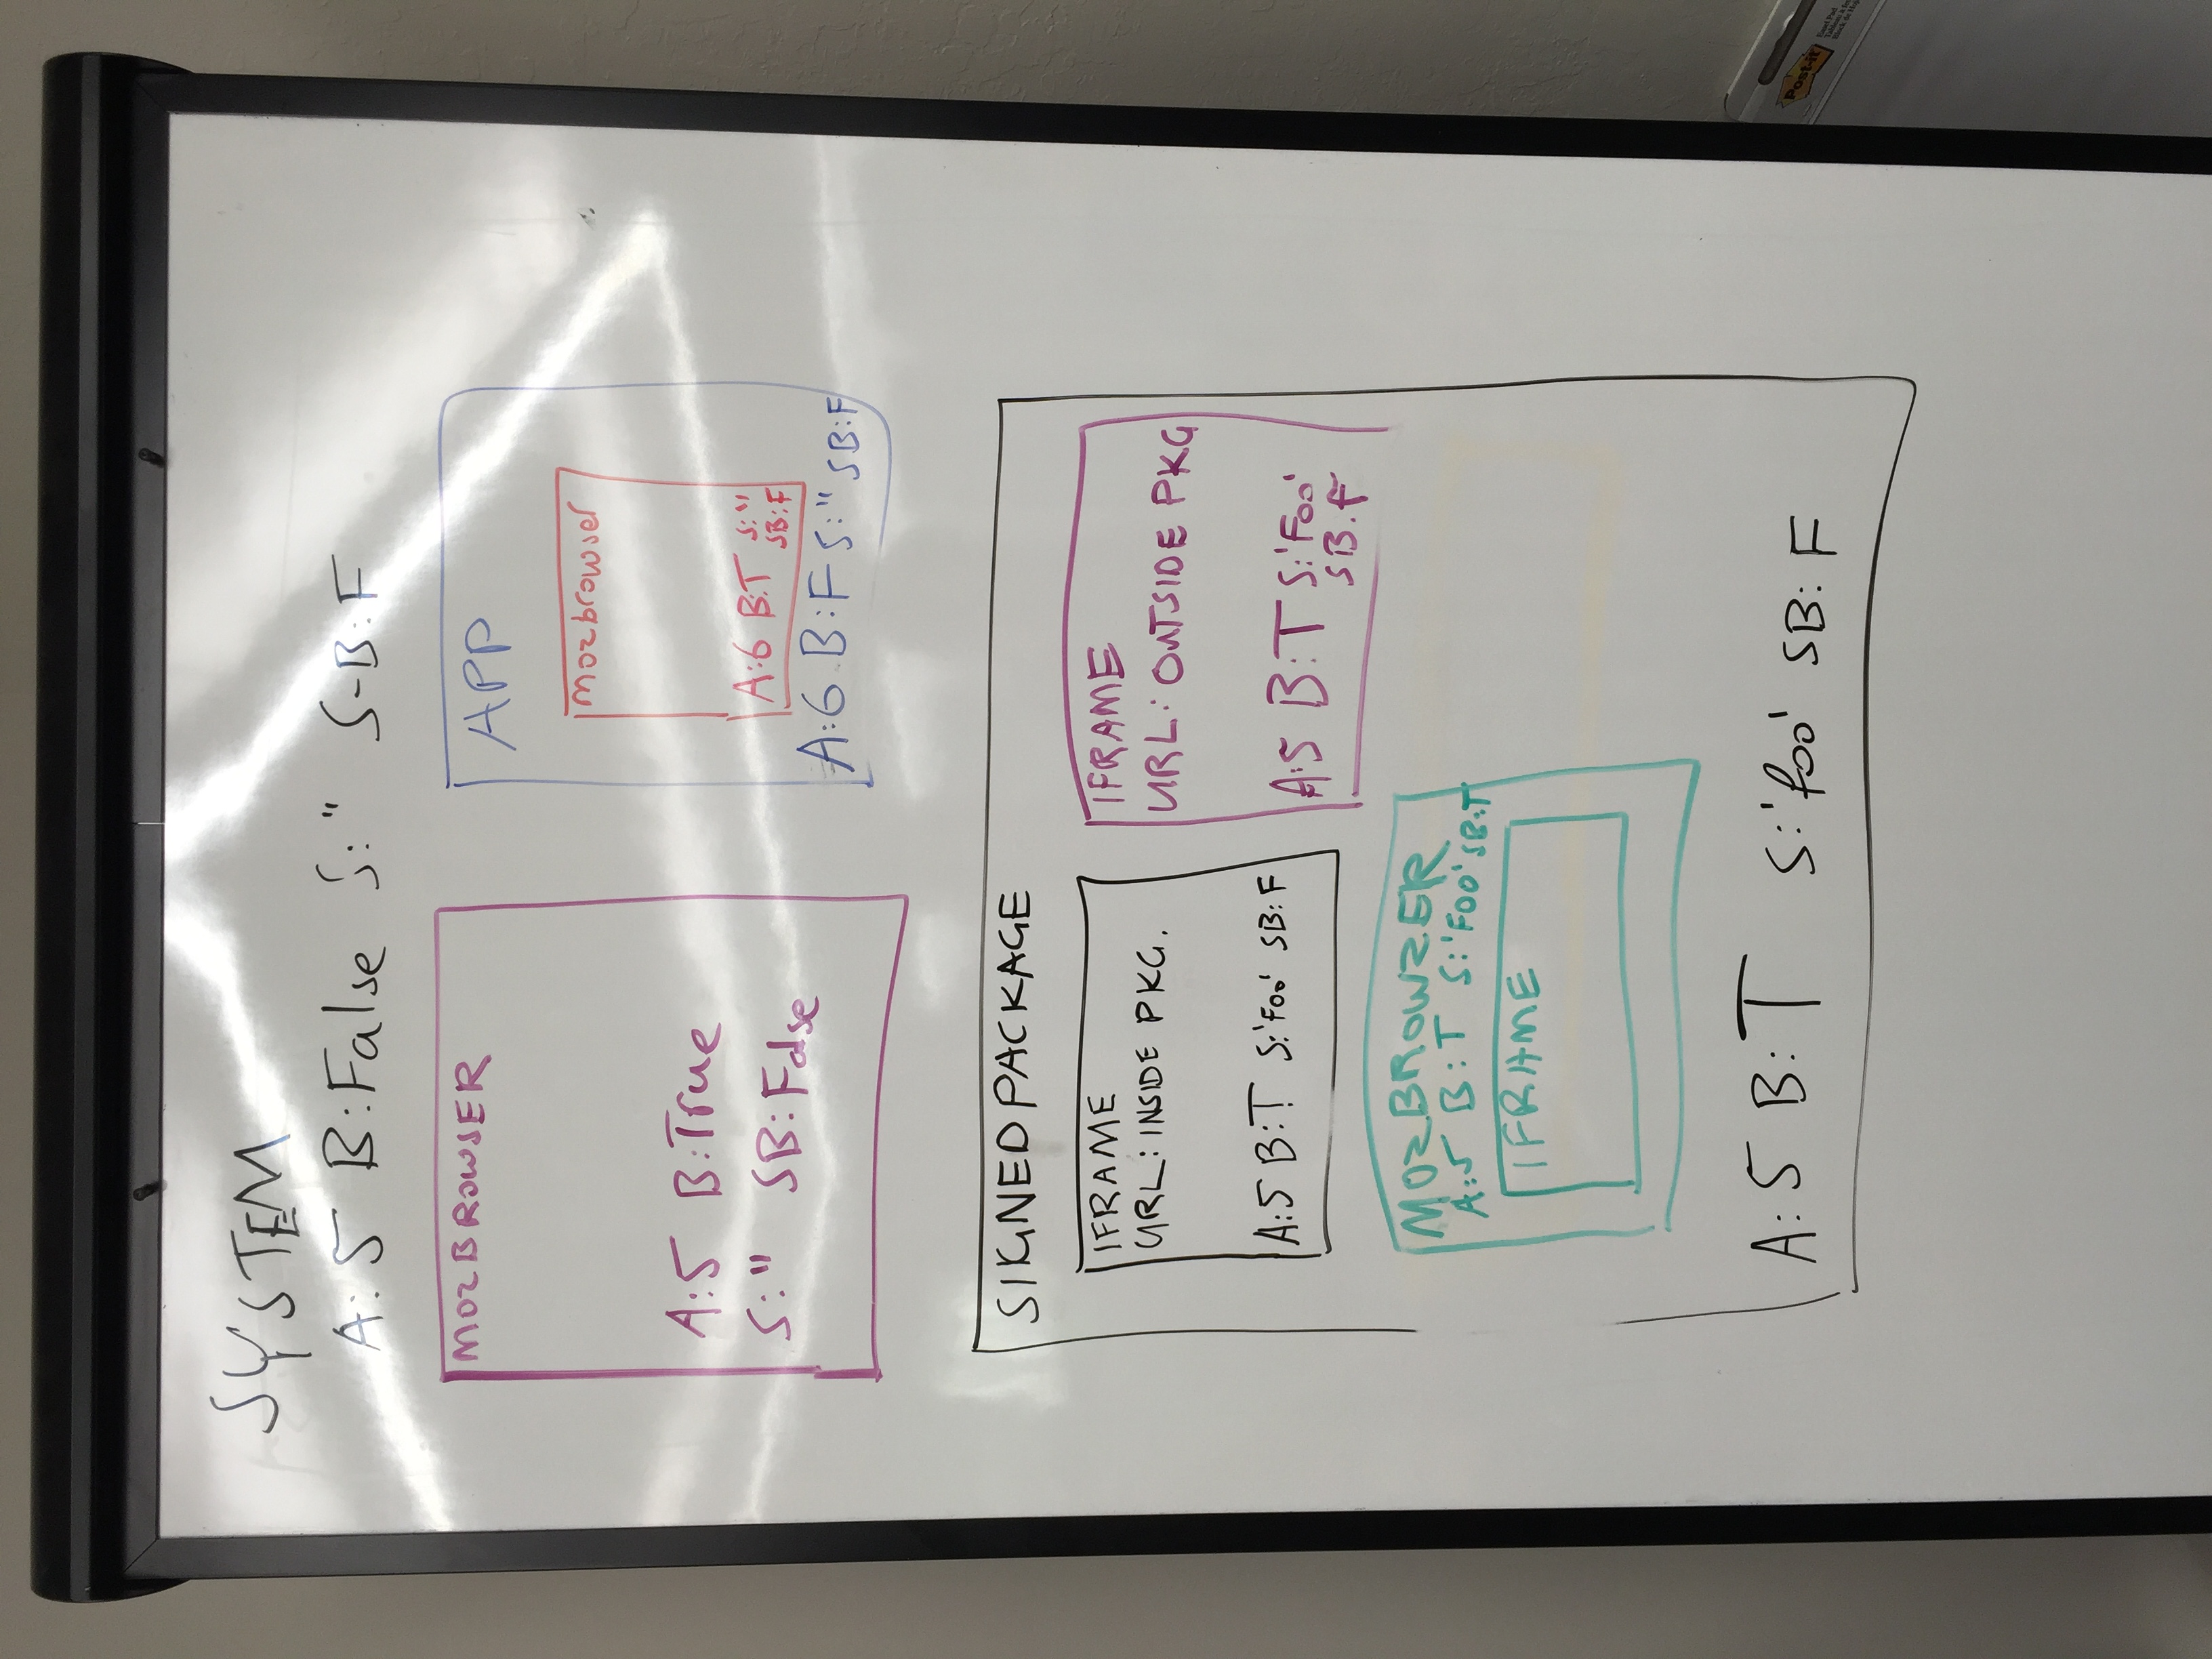 SYSTEM
A:5 B:False S:" S-B:F
MOZBROWSER
A:5 B:True
S:" SB:False
APP
mozbrowser
A:6 B:T S:"
SB:F
A:6 B:F S:" SB:F
SIGNED PACKAGE
IFRAME
URL: INSIDE PKG.
A:5 B:T S:'Foo' SB:F
IFRAME
URL: OUTSIDE PKG
A:5 B:T S:'Foo'
SB:F
MOZBROWZER
A:5 B:T S:'FOO' SB:T
IFRAME
A:5 B:T S:'foo' SB:F
Post-it
Easel Pad